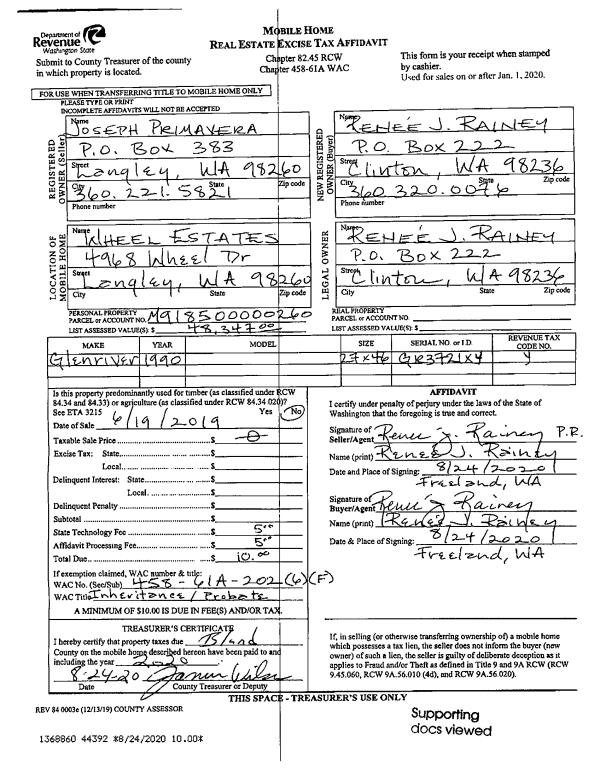 Department of
Revenue
Washington State
MOBILE HOME
REAL ESTATE EXCISE TAX AFFIDAVIT
Submit to County Treasurer of the county
in which property is located.
Chapter 82.45 RCW
Chapter 458-61A WAC
This form is your receipt when stamped
by cashier.
Used for sales on or after Jan. 1, 2020.
FOR USE WHEN TRANSFERRING TITLE TO MOBILE HOME ONLY
PLEASE TYPE OR PRINT
INCOMPLETE AFFIDAVITS WILL NOT BE ACCEPTED
REGISTERED
OWNER (Seller)
Name JOSEPH PRIMAVERA
P.O. BOX 383
Street Langley, WA 98260
City State Zip code
360.221.5821
Phone number
NEW REGISTERED
OWNER (Buyer)
Name RENEÉ J. RAINEY
P.O. BOX 222
Street Clinton, WA 98236
City State Zip code
360.320.0076
Phone number
LOCATION OF
MOBILE HOME
Name WHEEL ESTATES
4968 Wheel Dr
Street Langley, WA 98260
City State Zip code
LEGAL OWNER
Name RENEÉ J. RAINEY
P.O. BOX 222
Street Clinton, WA 98236
City State Zip code
PERSONAL PROPERTY
PARCEL or ACCOUNT NO. M918500000260
LIST ASSESSED VALUE(S): $ 48,347.00
REAL PROPERTY
PARCEL or ACCOUNT NO.
LIST ASSESSED VALUE(S): $
MAKE YEAR MODEL SIZE SERIAL NO. or I.D. REVENUE TAX CODE NO.
Glenriver 1990 27x46 GR3721X4 Y
Is this property predominantly used for timber (as classified under RCW
84.34 and 84.33) or agriculture (as classified under RCW 84.34.020)?
See ETA 3215 Yes No
Date of Sale 6/19/2019
Taxable Sale Price $ 0
Excise Tax: State $
Local $
Delinquent Interest: State $
Local $
Delinquent Penalty $
Subtotal $
State Technology Fee $ 5.00
Affidavit Processing Fee $ 5.00
Total Due $ 10.00
If exemption claimed, WAC number & title:
WAC No. (Sec/Sub) 458-61A-202(6)(F)
WAC Title Inheritance/Probate
A MINIMUM OF $10.00 IS DUE IN FEE(S) AND/OR TAX.
AFFIDAVIT
I certify under penalty of perjury under the laws of the State of
Washington that the foregoing is true and correct.
Signature of
Seller/Agent Reneé J. Rainey P.R.
Name (print) RENEÉ J. RAINEY
Date and Place of Signing: 8/24/2020
Freeland, WA
Signature of
Buyer/Agent Reneé J Rainey
Name (print) Reneé J. Rainey
Date & Place of Signing: 8/24/2020
Freeland, WA
TREASURER'S CERTIFICATE
I hereby certify that property taxes due Island
County on the mobile home described hereon have been paid to and
including the year 2020.
8-24-20
Date County Treasurer or Deputy
If, in selling (or otherwise transferring ownership of) a mobile home
which possesses a tax lien, the seller does not inform the buyer (new
owner) of such a lien, the seller is guilty of deliberate deception as it
applies to Fraud and/or Theft as defined in Title 9 and 9A RCW (RCW
9.45.060, RCW 9A.56.010 (4d), and RCW 9A.56.020).
THIS SPACE - TREASURER'S USE ONLY
REV 84 0003e (12/13/19) COUNTY ASSESSOR
Supporting
docs viewed
1368860 44392 *8/24/2020 10.00*